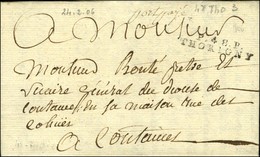 24-2-06
port payé
48 Tho S
P.48.P.
THORIGNY
A Monsieur
Monsieur Bonté prêtre &
vicaire général du diocèse de
coutances en sa maison rue des
A Coutances